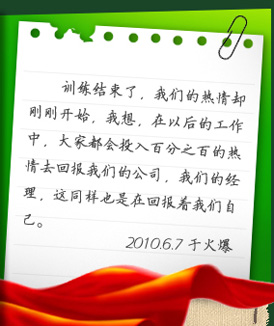 训练结束了，我们的热情却
刚刚开始，我想，在以后的工作
中，大家都会投入百分之百的热
情去回报我们的公司，我们的经
理，这同样也是在回报着我们自
己。
2010.6.7 于火爆